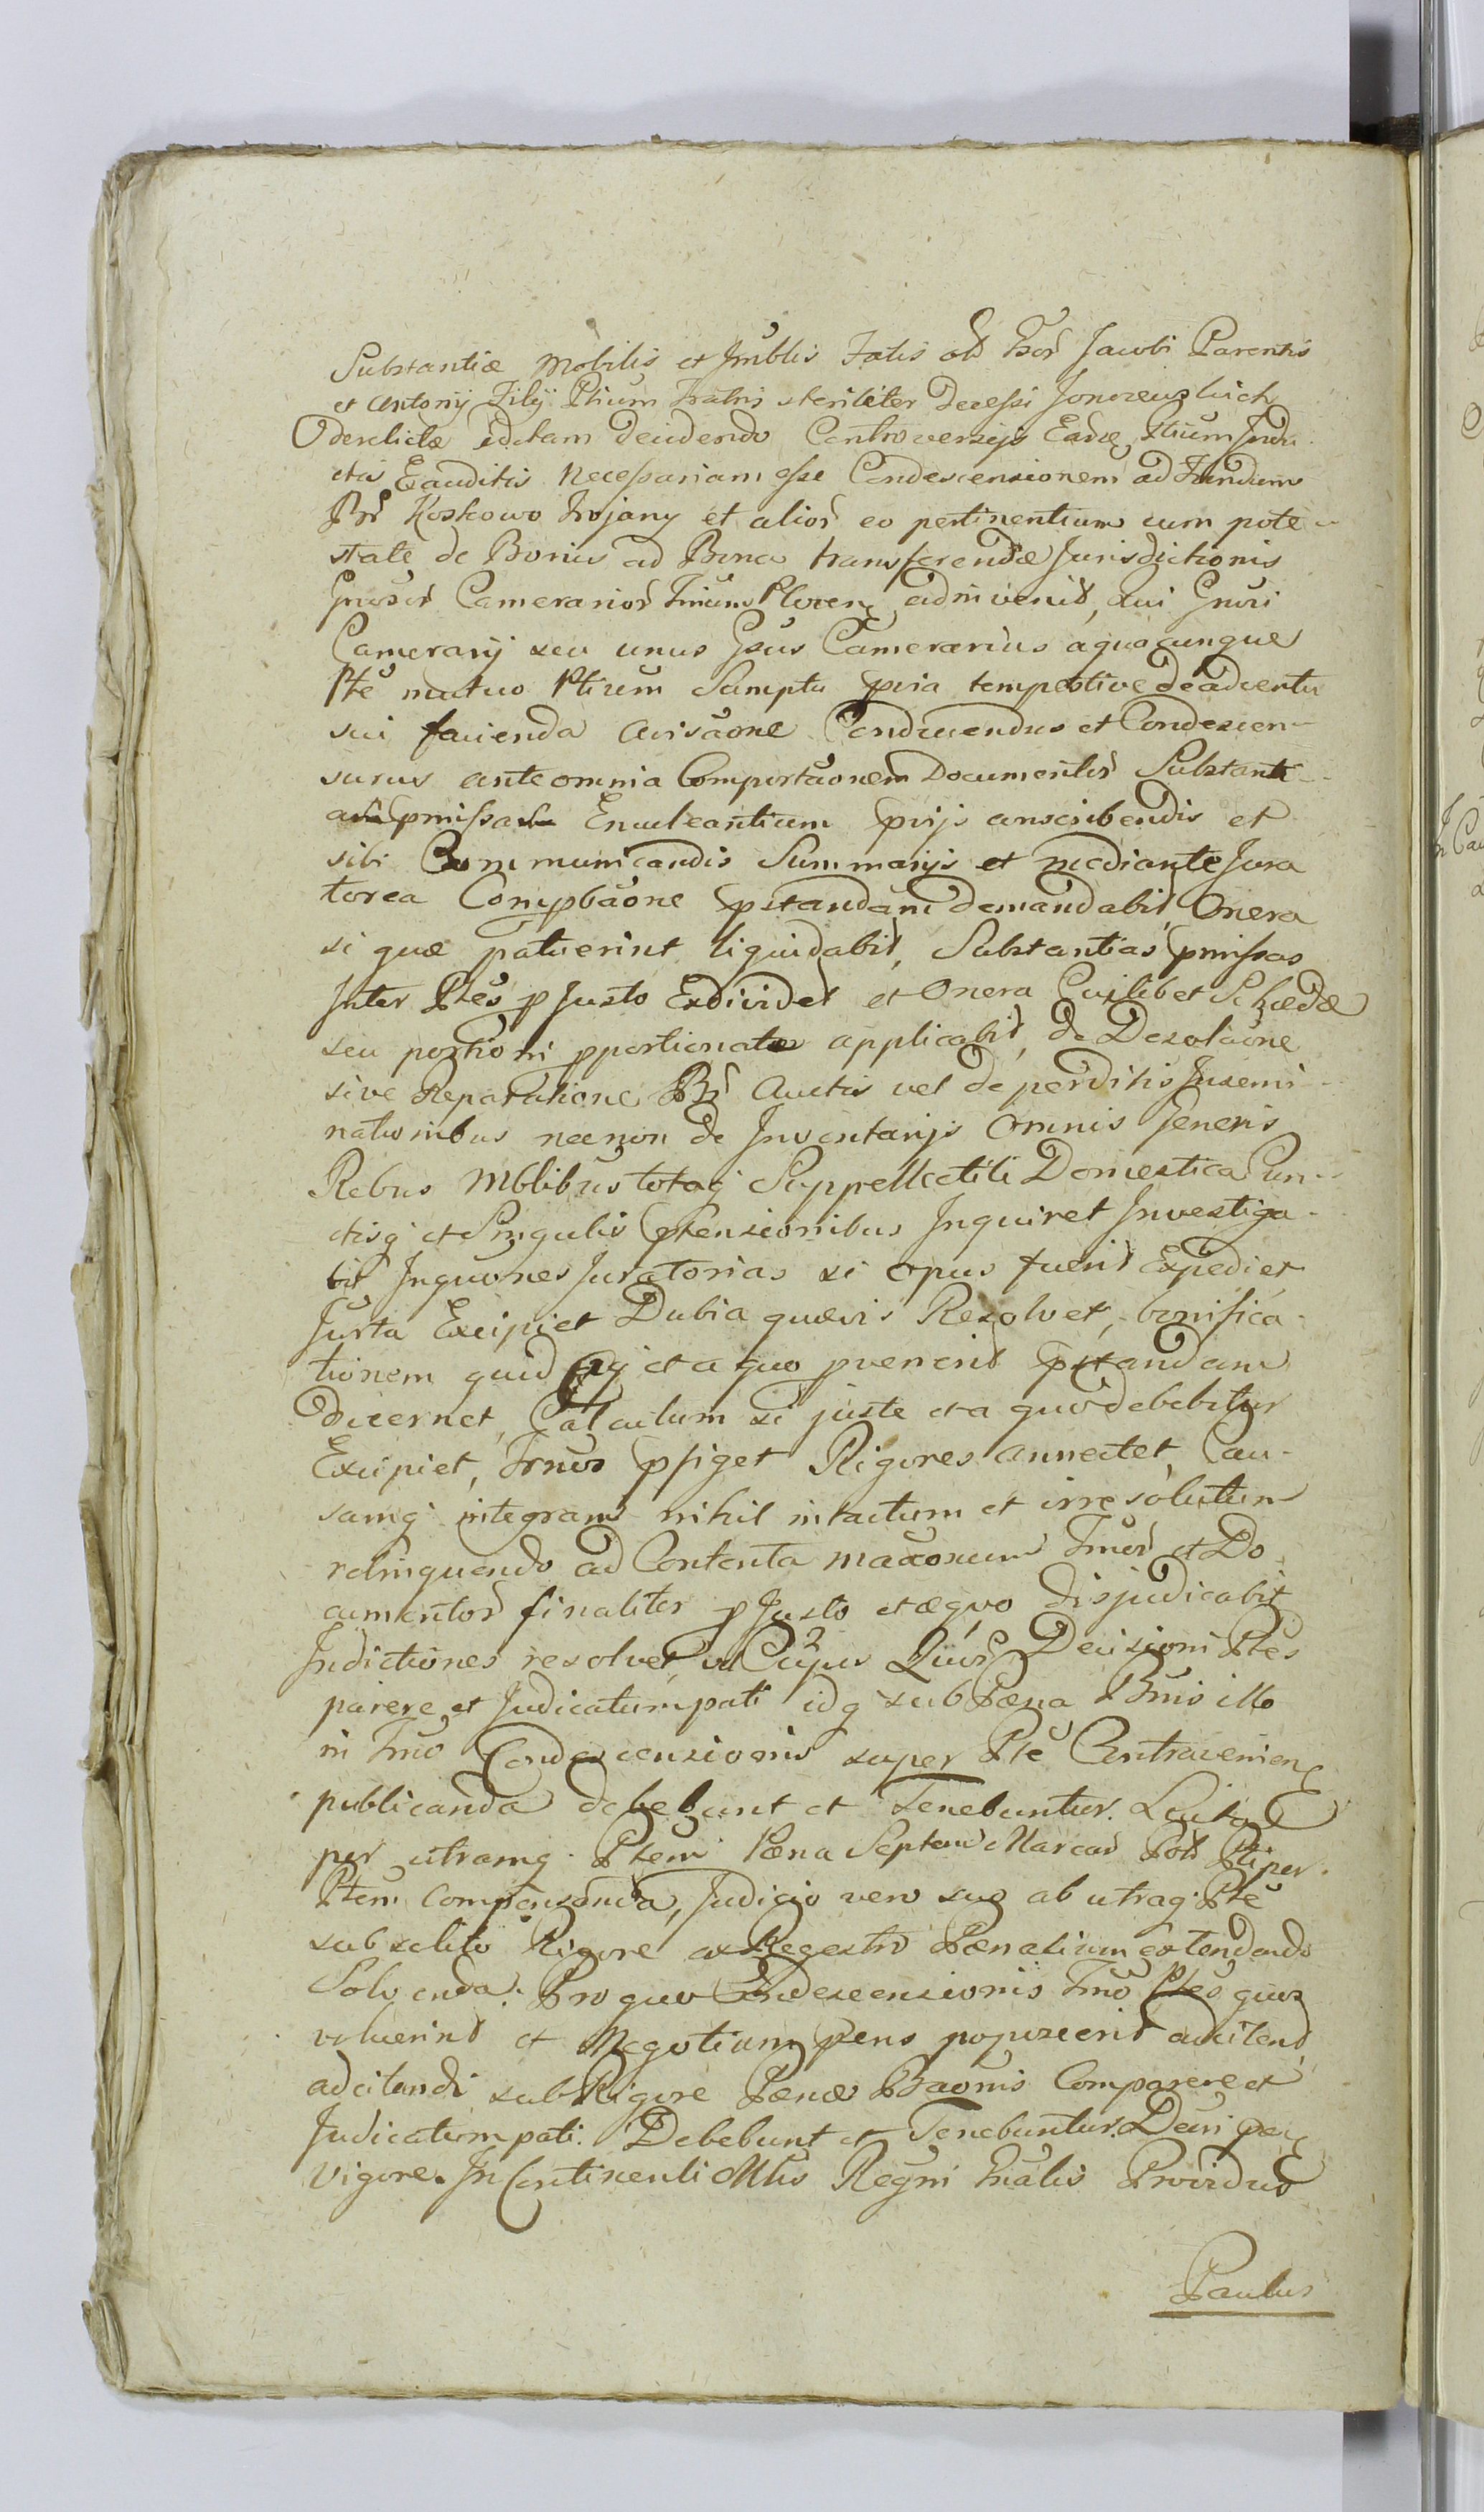 Substantiæ Mobilis et Imblis Fatis olĩ Gsoꝝ Jacobi Parentis
et Antonij Filij Ptium Fratris steriliter decessi Jonozenzhich
derelictæ edetam decidendo Controversijs Earũ Ptium Judi
ctis Exauditis Necessariam esse Condescensionem ad Fundum
Bnõr Koskowo Trojany et alior eo pertinentium cum pote-
state de Bonis ad Bona transferendæ Jurisdictionis
Gnõsor Camerarior Trium Plocen adinvenit, qui Gnõsi
Camerarij seu unus Gsus Camerarius a quocunque
Pte mutuo Ptium Sumptu pvia tempestive de adventu
sui facienda Avisaõne Conducendus et Condescen-
surus ante omnia Comportaõnem Documentor Substanti-
as pmissas Enucleantium pvijs conscribendis et
sibi Communicandis Summarijs et mediante Jura
torea Comprobaõne pstandam demandabit, Onera
si quæ patuerint liquidabit, Substantias pmissas
Inter Ptes p Justo Exdividet et Onera Cuilibet Schædæ
seu portioni pportionate applicabit, de Desolaõne
sive Reparatione Br Auctis vel deperditis Insemi-
nationibus necnon de Inventarijs Omnis Generis
Rebus Mblibus totaq Suppellectili Domestica Cun-
ctisq et Singulis Ptensionibus Inquiret Investiga-
bit Inquõnes Juratorias si opus fuerit Expediet
Jurta Excipiet Dubia quævis Resolvet, bonifica-
tionem quid et a quo pvenerit pstandam
Decernet, Calculum si juste et a quo debebitur
Excipiet, Trnos pfiget Rigores annectet, Cau-
samq integram nihil intactum et irresolutum
relinquendo ad Contenta maaõnum Trnor et Do
cumentor finaliter p Justo et æquo disjudicabit
Indictiones resolvet, Cujus Decisioni Ptes
parere et Judicatum pati idq sub Pæna Bnis illo
in Trno Condescensionis super Pte Contravenien
publicanda debebunt et Tenebuntur. Luita
per utramq Ptem Pæna Septem Marcar Pol Pti per
Ptem Compensanda, Judicio vero suo ab utraq Pte
sub solito Rigore ex Regestro Pænalium extendendo
Solvenda. Pro quo Condescensionis Trno Ptes quos
voluerint et Negotium pens poposcerit adcitent,
adcitandi sub Rigore Pænæ Baõnis Comparere et
Judicatum pati. Debebunt et Tenebuntur. Decri pn
Vigore. In Continenti Mlis Regni Gnalis Providus
Paulus